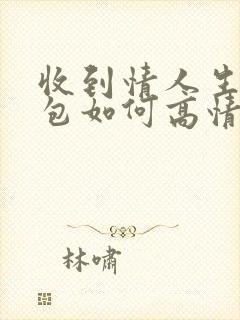 收到情人生
包如何高情
林啸